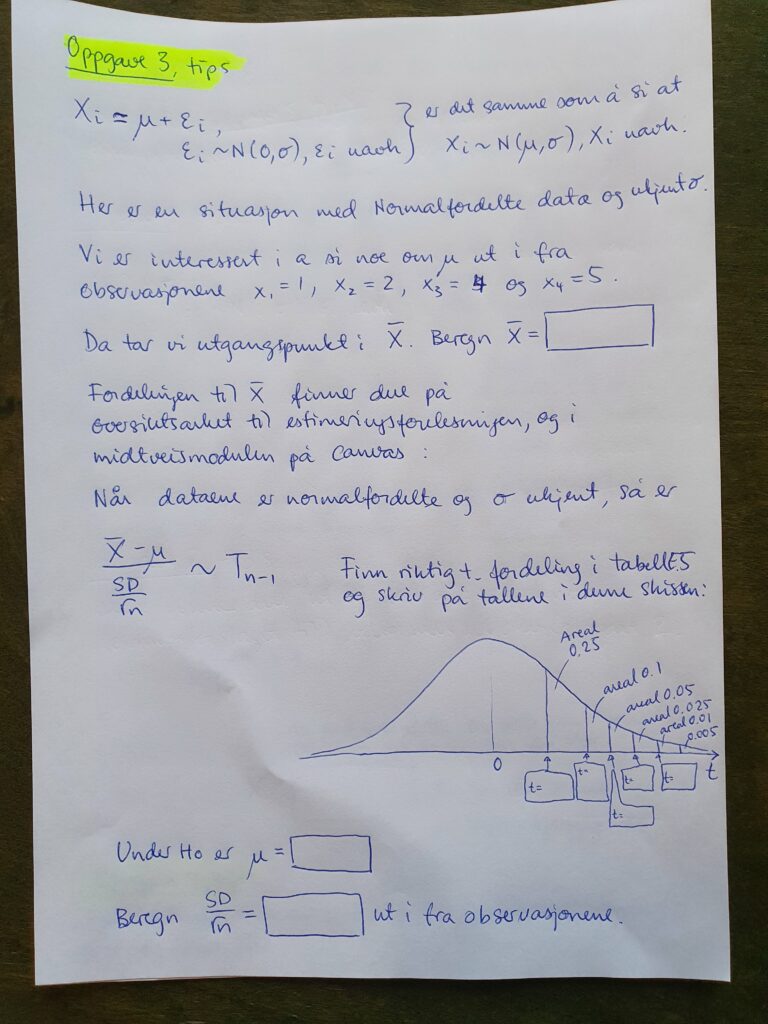 Oppgave 3, tips
Xi = μ + εi,
εi ~ N(0,σ), εi uavh } er det samme som å si at
Xi ~ N(μ,σ), Xi uavh.
Her er en situasjon med Normalfordelte data og ukjent σ.
Vi er interessert i a si noe om μ ut i fra
observasjonene x₁ = 1, x₂ = 2, x₃ = 4 og x₄ = 5.
Da tar vi utgangspunkt i X̄. Beregn X̄ =
Fordelingen til X̄ finner due på
oversiktsarket til estimeringsforelesningen, og i
midtveismodulen på Canvas :
Når dataene er normalfordelte og σ ukjent, så er
(X̄ - μ) / (SD/√n) ~ Tn-1
Finn riktig t-fordeling i tabell E.5
og skriv på tallene i denne skissen:
Areal
0.25
areal 0.1
areal 0.05
areal 0.025
areal 0.01
0.005
0
t
t=
t=
t=
t=
t=
Under Ho er μ =
Beregn SD/√n = ut i fra observasjonene.